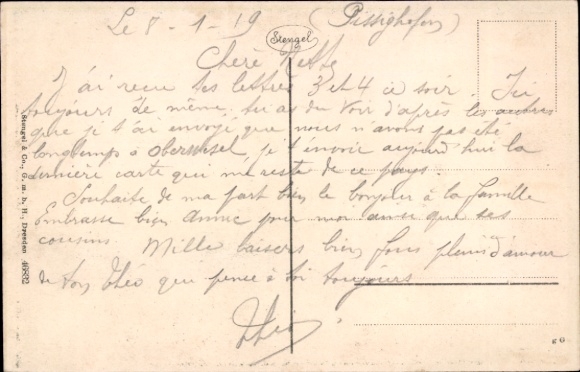 Le 8-1-19 (Pissighofen)
Stengel
Chère Nette
J'ai reçu tes lettres 3 et 4 ce soir. Ici
toujours de même, tu as du voir d'après les autres
que je t'ai envoyé, que nous n'avons pas été
longtemps à Oberursel, je t'envoie aujourd'hui la
dernière carte qui me reste de ce pays.
Souhaite de ma part bien le bonjour à la famille
Embrasse bien Annie pour moi ainsi que ses
cousins. Mille baisers bien fous plein d'amour
de ton Théo qui pence à toi toujours
Théo
Stengel & Co., G. m. b. H., Dresden 46832